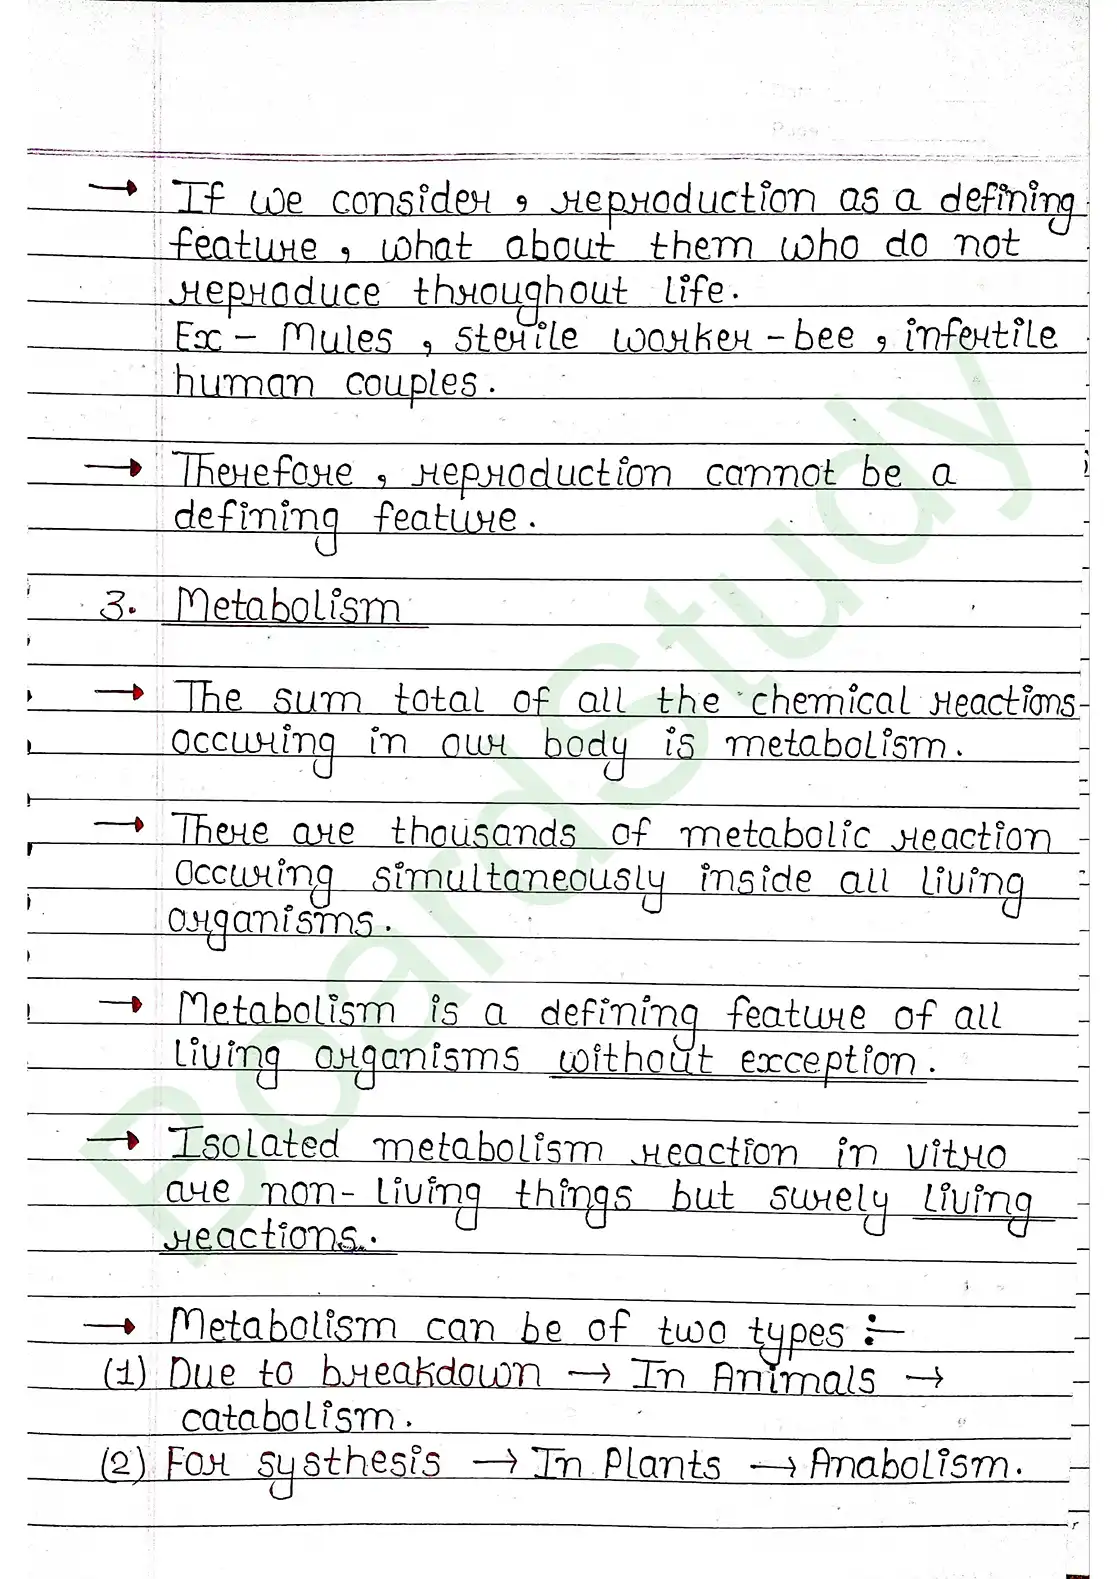 → If we consider, reproduction as a defining
feature, what about them who do not
reproduce throughout life.
Ex - Mules, sterile worker-bee, infertile
human couples.
→ Therefore, reproduction cannot be a
defining feature.
3. Metabolism
→ The sum total of all the chemical reactions
occuring in our body is metabolism.
→ There are thousands of metabolic reaction
occuring simultaneously inside all living
organisms.
→ Metabolism is a defining feature of all
living organisms without exception.
→ Isolated metabolism reaction in vitro
are non-living things but surely living
reactions.
→ Metabolism can be of two types :-
(1) Due to breakdown → In Animals →
catabolism.
(2) For systhesis → In Plants → Anabolism.
BoardStudy